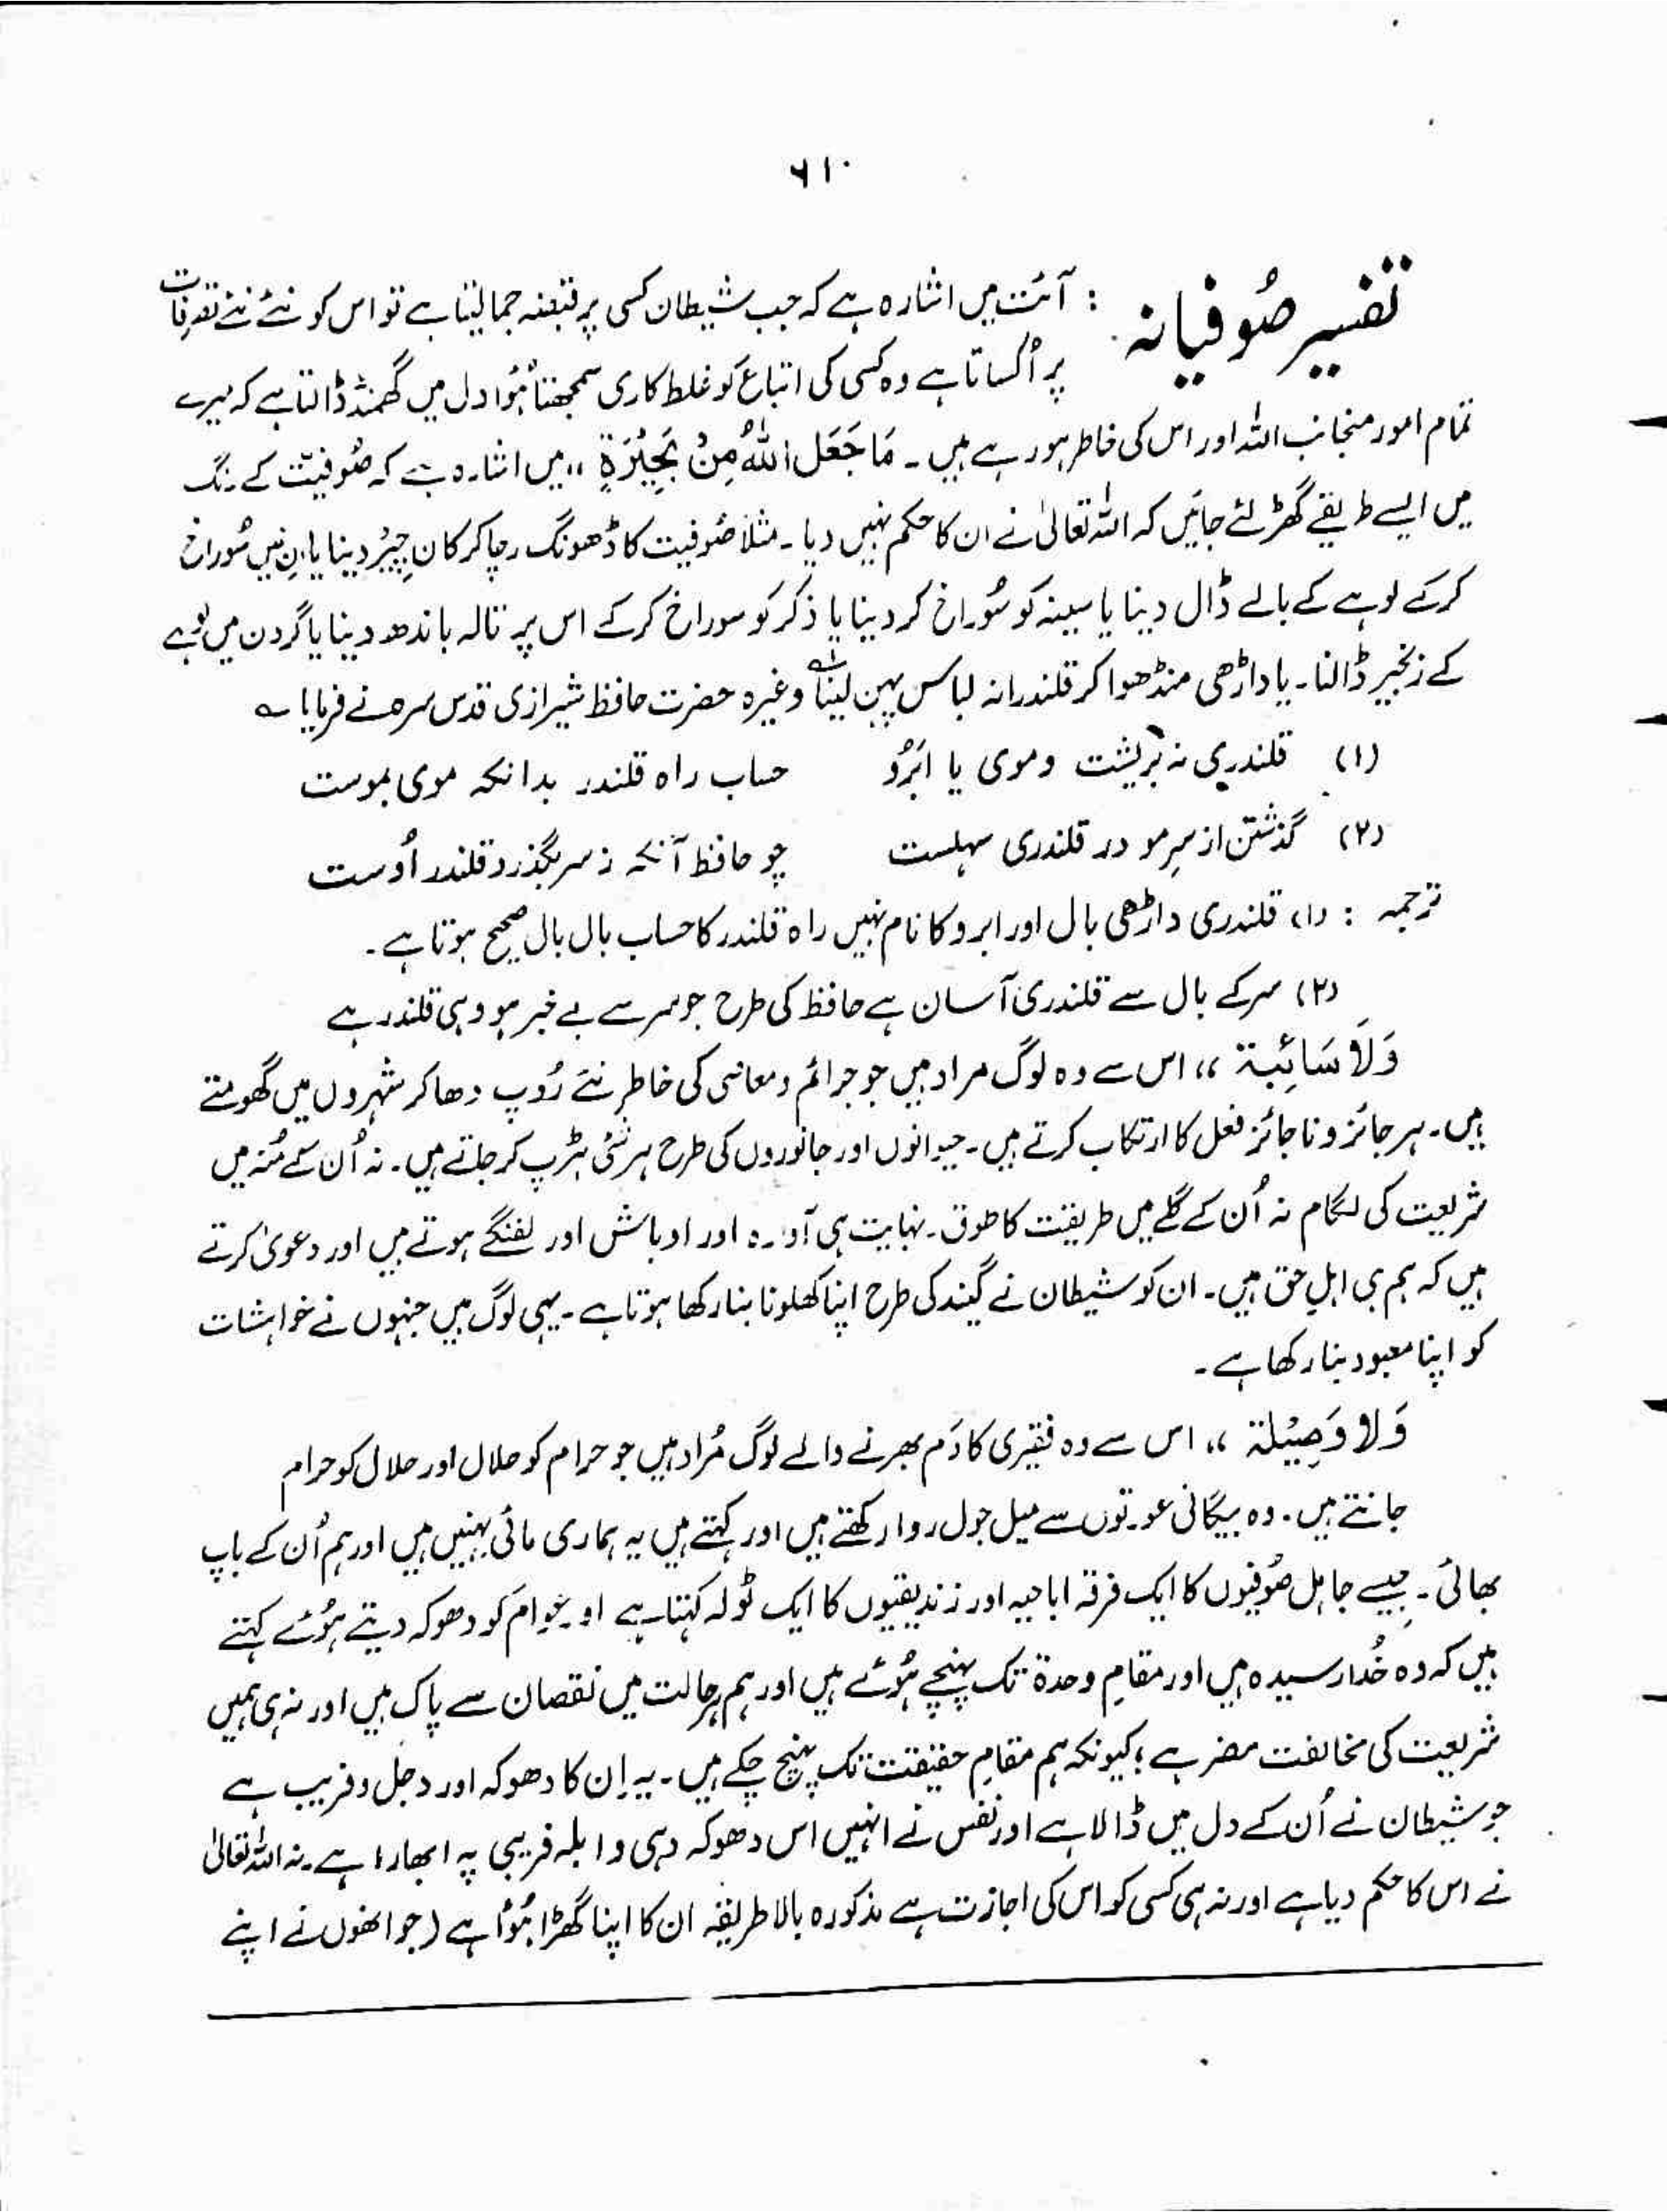 ۶۱۰
تفسیر صُوفیانہ : آئت میں اشارہ ہے کہ جب شیطان کسی پر قبضہ جما لیتا ہے تو اس کو نئے نئے تصرفات
پر اُکساتا ہے وہ کسی کی اتباع کو غلط کاری سمجھتا ہُوا دل میں گھمنڈ ڈالتا ہے کہ میرے
تمام امور منجانب اللہ اور اس کی خاطر ہو رہے ہیں ۔ مَا جَعَلَ اللّٰهُ مِنْ بَحِيْرَةٍ ،، میں اشارہ ہے کہ صُوفیّت کے رنگ
میں ایسے طریقے گھڑ لئے جائیں کہ اللہ تعالیٰ نے ان کا حکم نہیں دیا ۔ مثلاً صُوفیت کا ڈھونگ رچا کر کان چیر دینا یا ان میں سُوراخ
کرکے لوہے کے بالے ڈال دینا یا سینہ کو سُوراخ کر دینا یا ذکر کو سوراخ کرکے اس پر تالہ باندھ دینا یا گردن میں لوہے
کے زنجیر ڈالنا ۔ یا داڑھی منڈھوا کر قلندرانہ لباس پہن لینا وغیرہ حضرت حافظ شیرازی قدس سرہ نے فرمایا ؎
(۱) قلندری نہ بریشت و موی یا ابرُو حساب راہ قلندر بدانکہ موی بموست
(۲) گذشتن از سرِ مو در قلندری سہلست چو حافظ آنکہ ز سر بگذرد قلندر اُوست
ترجمہ : (۱) قلندری داڑھی بال اور ابرو کا نام نہیں راہ قلندر کا حساب بال بال صحیح ہوتا ہے ۔
(۲) سر کے بال سے قلندری آسان ہے حافظ کی طرح جو سر سے بے خبر ہو وہی قلندر ہے
وَلَا سَائِبة ،، اس سے وہ لوگ مراد ہیں جو جرائم و معاصی کی خاطر نئے رُوپ دھا کر شہروں میں گھومتے
ہیں ۔ ہر جائز و ناجائز فعل کا ارتکاب کرتے ہیں ۔ حیوانوں اور جانوروں کی طرح ہر شئی ہڑپ کر جاتے ہیں ۔ نہ اُن کے مُنہ میں
شریعت کی لگام نہ اُن کے گلے میں طریقت کا طوق ۔ نہایت ہی آوارہ اور اوباش اور لفنگے ہوتے ہیں اور دعویٰ کرتے
ہیں کہ ہم ہی اہلِ حق ہیں ۔ ان کو شیطان نے گیند کی طرح اپنا کھلونا بنا رکھا ہوتا ہے ۔ یہی لوگ ہیں جنہوں نے خواہشات
کو اپنا معبود بنا رکھا ہے ۔
وَلَا وَصِيْلة ،، اس سے وہ فقیری کا دَم بھرنے والے لوگ مُراد ہیں جو حرام کو حلال اور حلال کو حرام
جانتے ہیں ۔ وہ بیگانی عورتوں سے میل جول روا رکھتے ہیں اور کہتے ہیں یہ ہماری مائی بہنیں ہیں اور ہم اُن کے باپ
بھائی ۔ جیسے جاہل صُوفیوں کا ایک فرقہ اباحیہ اور زندیقیوں کا ایک ٹولہ کہتا ہے اور عوام کو دھوکہ دیتے ہُوئے کہتے
ہیں کہ وہ خُدا رسیدہ ہیں اور مقامِ وحدۃ تک پہنچے ہُوئے ہیں اور ہم ہر حالت میں نقصان سے پاک ہیں اور نہ ہی ہمیں
شریعت کی مخالفت مضر ہے ؛ کیونکہ ہم مقامِ حقیقت تک پہنچ چکے ہیں ۔ یہ اِن کا دھوکہ اور دجل و فریب ہے
جو شیطان نے اُن کے دل میں ڈالا ہے اور نفس نے انہیں اس دھوکہ دہی و ابلہ فریبی پہ ابھارا ہے ۔ نہ اللہ تعالیٰ
نے اس کا حکم دیا ہے اور نہ ہی کسی کو اس کی اجازت ہے مذکورہ بالا طریقہ ان کا اپنا گھڑا ہُوا ہے (جو انھوں نے اپنے